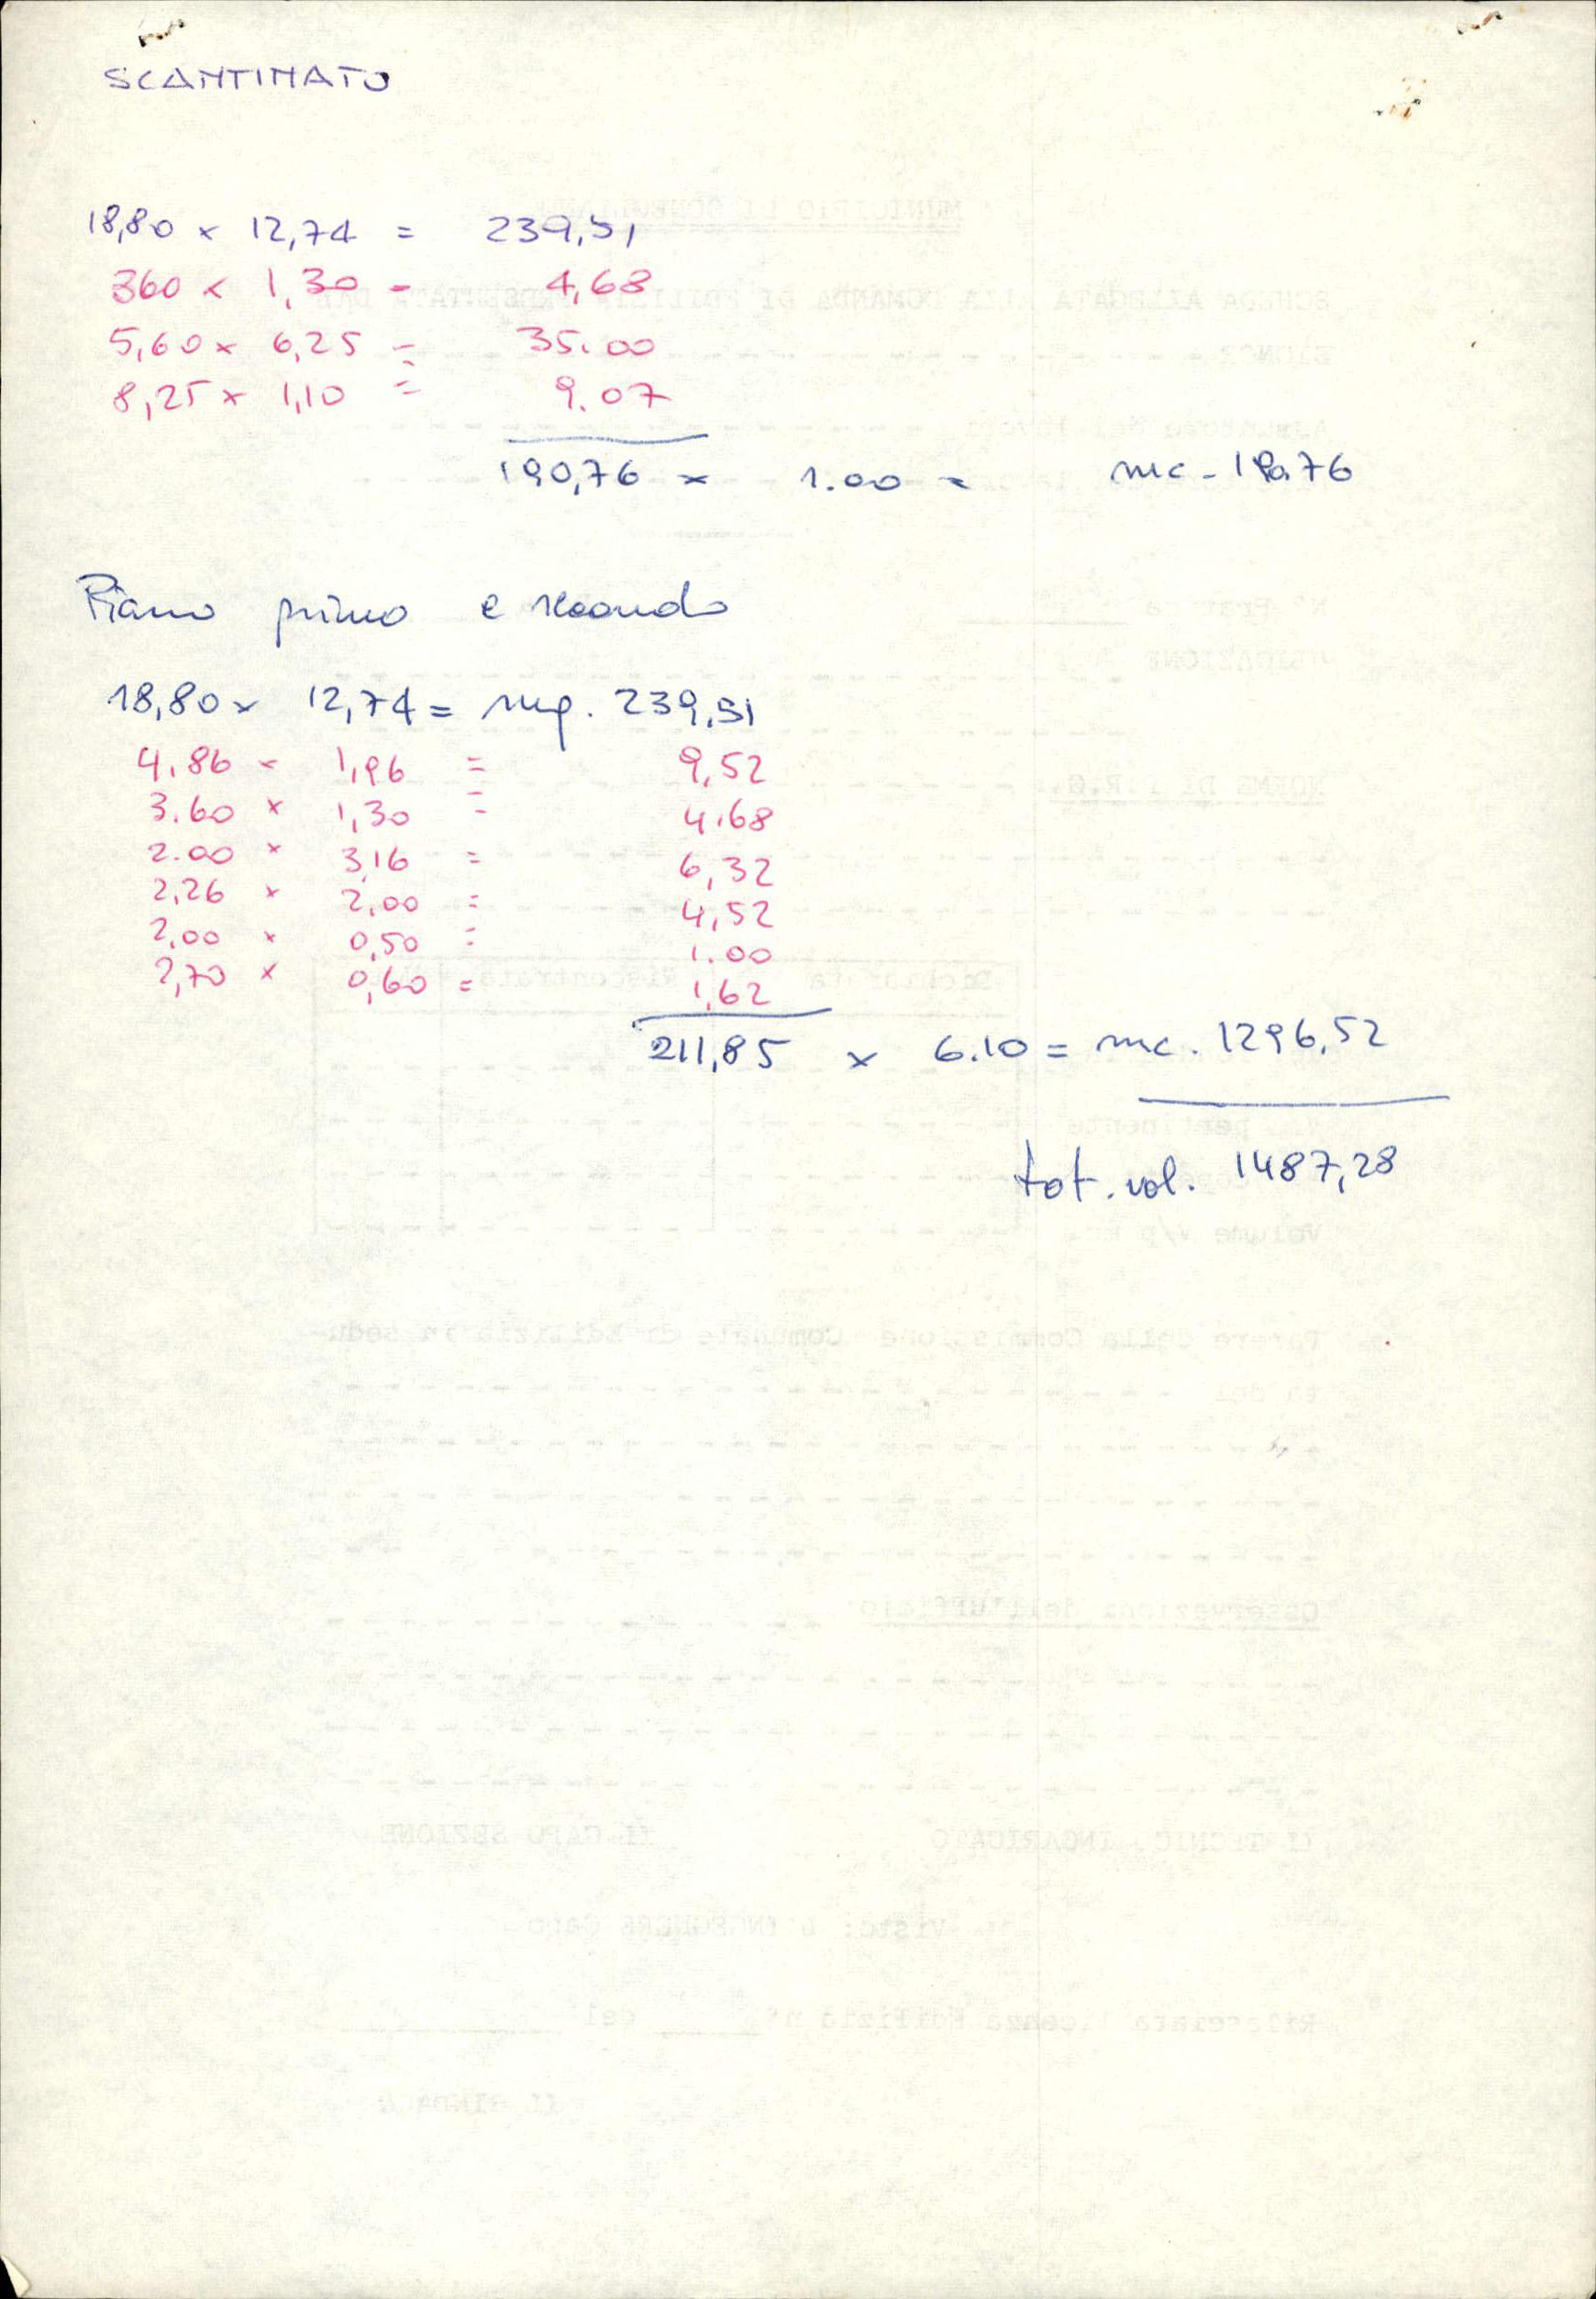 SCANTINATO
18,80 x 12,74 = 239,51
360 x 1,30 = 4,68
5,60 x 6,25 = 35.00
8,25 x 1,10 = 9.07
190,76 x 1.00 = mc - 190.76
Piano primo e secondo
18,80 x 12,74 = mq. 239,51
4.86 x 1,96 = 9,52
3.60 x 1,30 = 4.68
2.00 x 3,16 = 6,32
2,26 x 2,00 = 4,52
2,00 x 0,50 = 1.00
2,70 x 0,60 = 1,62
211,85 x 6.10 = mc. 1296,52
tot. vol. 1487,28